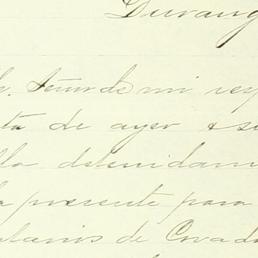 Durang
Señor de mi resp
ta de ayer
lla detenidam
a presente para
tarios de Covad